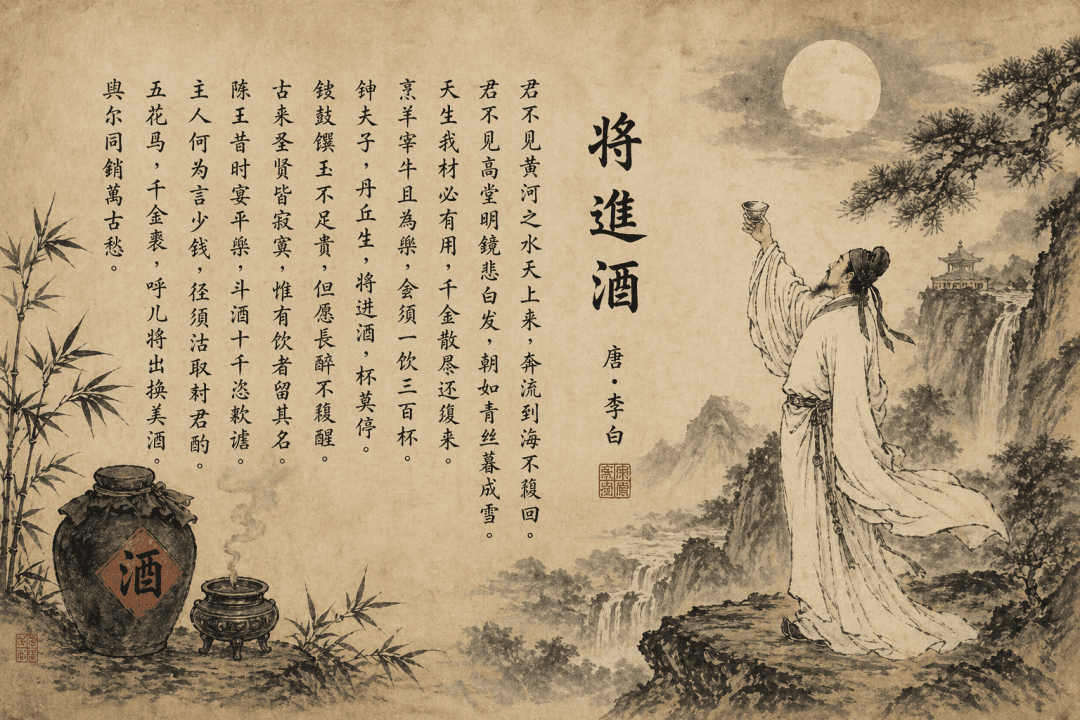 将進酒
唐·李白
君不见黄河之水天上来，奔流到海不回。
君不见高堂明鏡悲白发，朝如青丝暮成雪。
天生我材必有用，千金散还復来。
烹羊宰牛且為樂，須一饮三百杯。
钟夫子，丹丘生，将进酒，杯莫停。
鼓馔玉不足貴，但愿長醉不醒。
古来圣贤皆寂寞，惟有饮者留其名。
陈王昔时宴平樂，斗酒十千恣。
主人何为言少钱，径須沽取君酌。
五花，千金裘，呼儿将出换美酒。
與尔同銷萬古愁。
酒